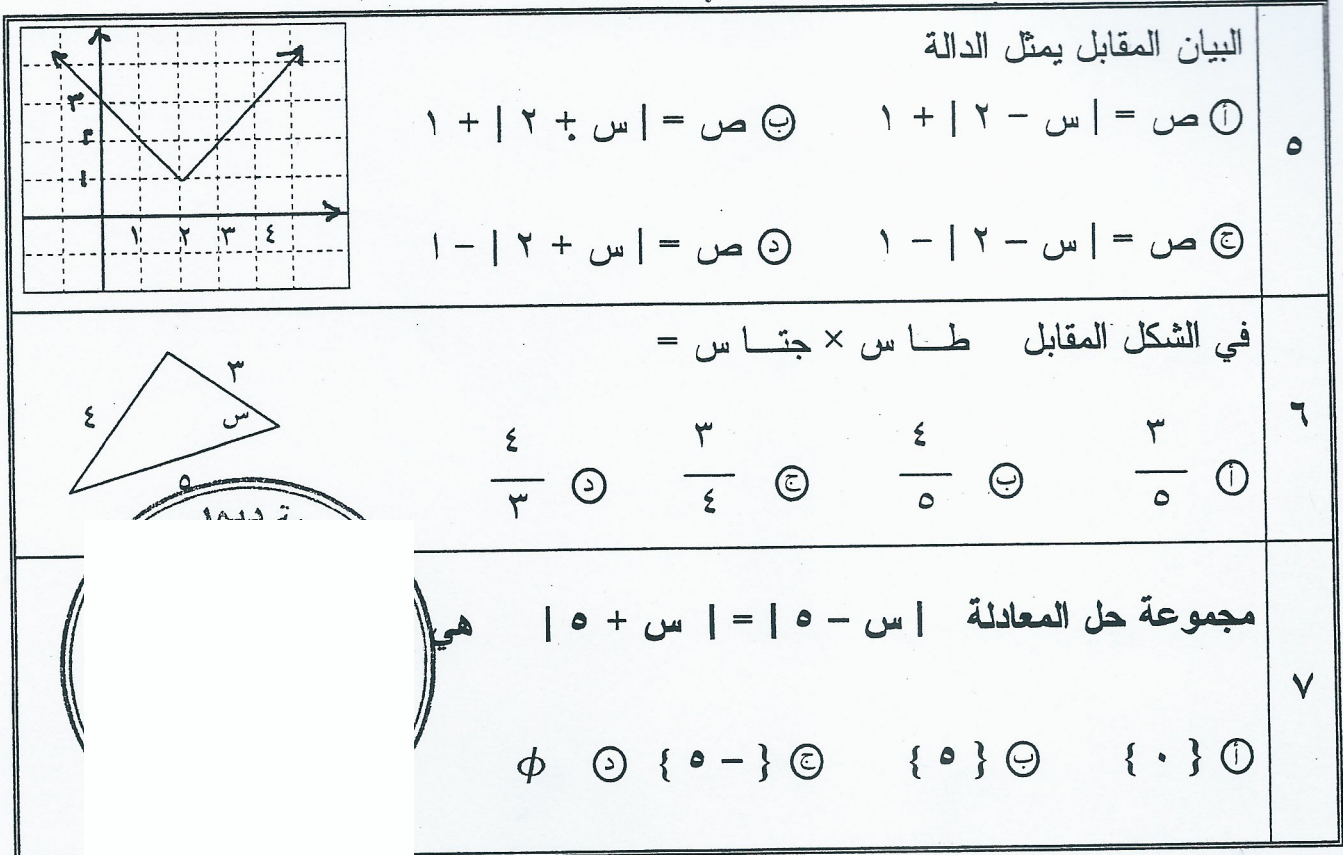 ٥
البيان المقابل يمثل الدالة
أ ص = | س − ٢ | + ١ ب ص = | س + ٢ | + ١
ج ص = | س − ٢ | − ١ د ص = | س + ٢ | − ١
٣
٢
١
١ ٢ ٣ ٤
٦
في الشكل المقابل طـا س × جتـا س =
أ ٣/٥ ب ٤/٥ ج ٣/٤ د ٤/٣
٣
٤
س
٥
٧
مجموعة حل المعادلة | س − ٥ | = | س + ٥ | هي
أ { ٠ } ب { ٥ } ج { − ٥ } د ϕ